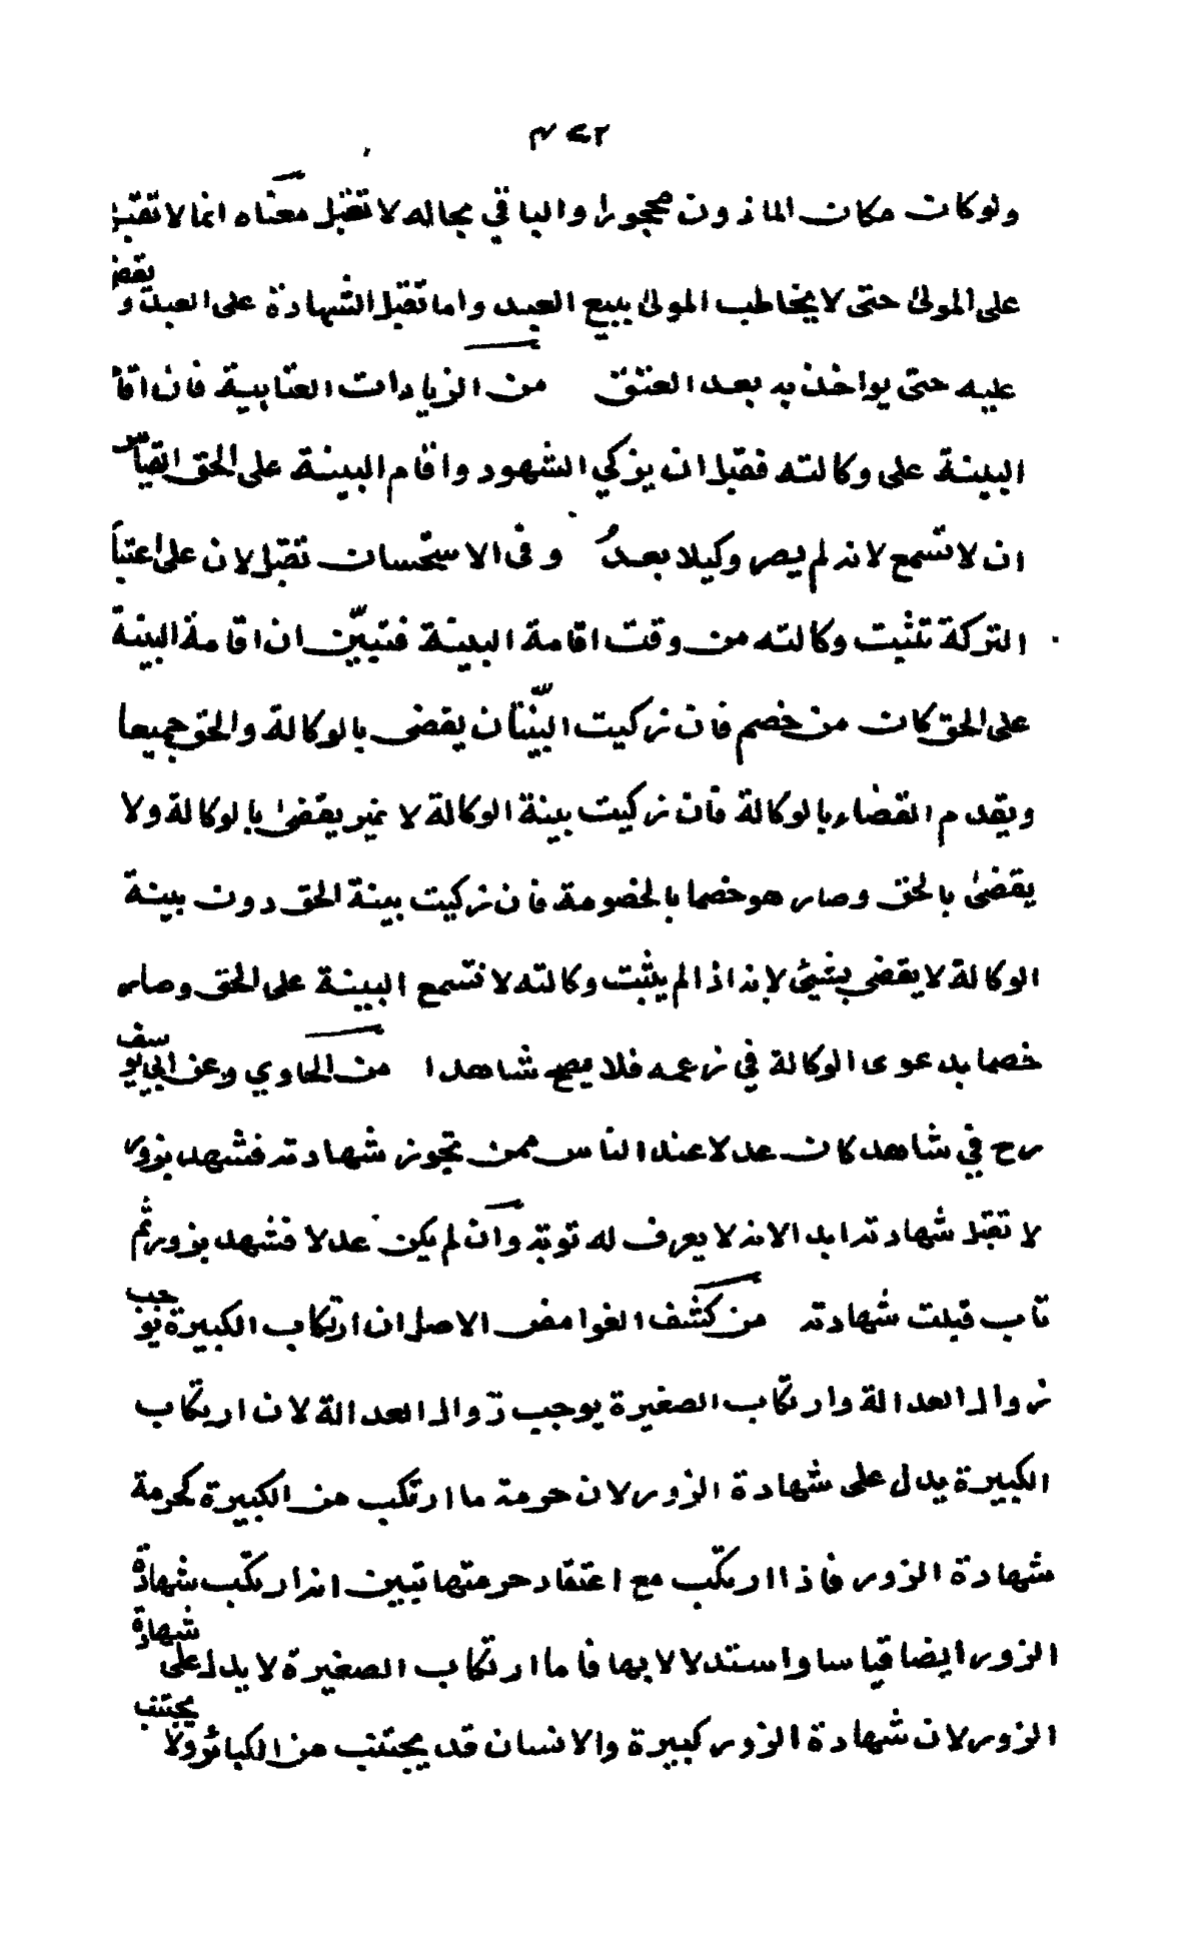 ولو كان مكان الماذون محجورا والباقي بحاله لا تقبل معناه انما لا تقبل
على المولى حتى لا يخاطب المولى ببيع العبد واما تقبل الشهادة على العبد و يقضى
عليه حتى يواخذ به بعد العتق من الزيادات العتابية فان اقام
البينة على وكالته فقبل ان يزكي الشهود واقام البينة على الحق القياس
ان لا تسمع لانه لم يصر وكيلا بعد وفى الاستحسان تقبل لان على اعتبا
التركة تثبت وكالته من وقت اقامة البينة فتبيّن ان اقامة البينة
على الحق كان من خصم فان زكيت البيّنتان يقضى بالوكالة والحق جميعا
ويقدم القضاء بالوكالة فان زكيت بينة الوكالة لا غير يقضى بالوكالة ولا
يقضى بالحق وصار هو خصما بالخصومة فان زكيت بينة الحق دون بينة
الوكالة لا يقضى بشئ لانه اذا لم يثبت وكالته لا تسمع البينة على الحق وصار
خصما بدعوى الوكالة في زعمه فلا يصح شاهدا من الحاوي وعن ابي يوسف
رح في شاهد كان عدلا عند الناس ممن تجوز شهادته فشهد بزور
لا تقبل شهادته ابدا لانه لا يعرف له توبة وان لم يكن عدلا فشهد بزور ثم
تاب قبلت شهادته من كشف الغوامض الاصل ان ارتكاب الكبيرة يوجب
زوال العدالة وارتكاب الصغيرة يوجب زوال العدالة لان ارتكاب
الكبيرة يدل على شهادة الزور لان حرمة ما ارتكب من الكبيرة كحرمة
شهادة الزور فاذا ارتكب مع اعتقاد حرمتها تبين انه ارتكب شهادة
الزور ايضا قياسا واستدلالا بها فاما ارتكاب الصغيرة لا يدل على شهادة
الزور لان شهادة الزور كبيرة والانسان قد يجتنب من الكبائر ولا يجتنب